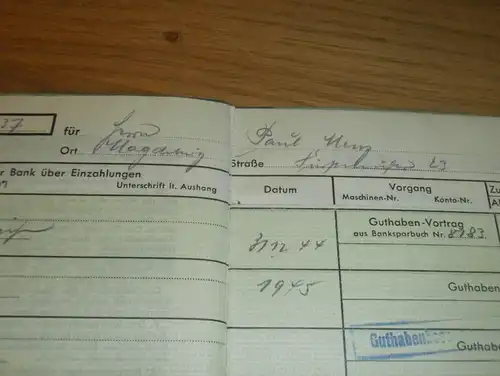 37 für Herrn Paul
Ort Magdeburg Straße 29
Bank über Einzahlungen
Unterschrift lt. Aushang
Datum Vorgang
Maschinen-Nr. Konto-Nr.
Guthaben-Vortrag
aus Banksparbuch Nr. 8183
31.12.44
1945 Guthaben
Guthaben
Guthaben